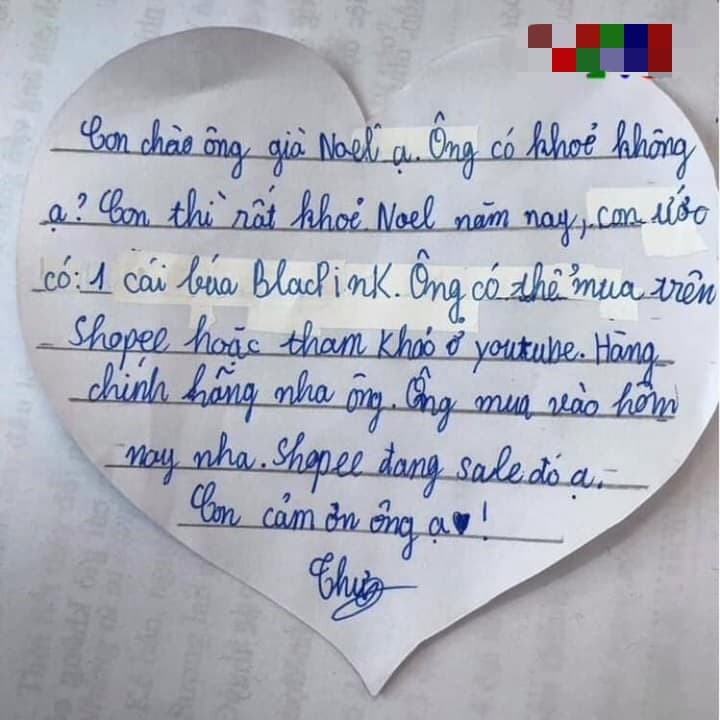 Con chào ông già Noel ạ. Ông có khoẻ không
ạ? Con thì rất khoẻ. Noel năm nay, con ước
có: 1 cái búa BlacPinK. Ông có thể mua trên
Shopee hoặc tham khảo ở youtube. Hàng
chính hãng nha ông. Ông mua vào hôm
nay nha. Shopee đang sale đó ạ.
Con cảm ơn ông ạ♥!
Thư